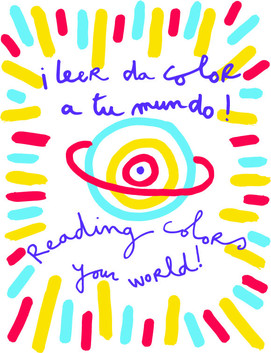 ¡leer da color
a tu mundo!
Reading colors
your world!